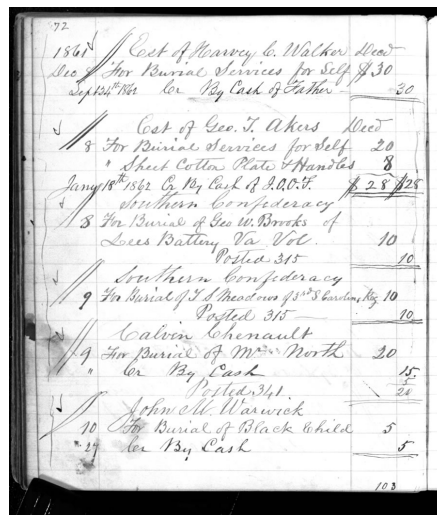 72
1861 Est of Harvey C. Walker Decd
Dec 8 For Burial Services for Self $30
Sept 24th 1862 Cr By Cash of Father 30
Est of Geo. T. Akers Decd
8 For Burial Services for Self 20
" Sheet Cotton Plate & Handles 8
Jany 18th 1862 Cr By Cash of I.O.O.F. $28 $28
Southern Confederacy
8 For Burial of Geo W. Brooks of
Lees Battery Va Vol. 10
Posted 315 10
Southern Confederacy
9 For Burial of T S Meadows of 3rd S Carolina Reg 10
Posted 315 10
Calvin Chenault
9 For Burial of Mrs North 20
" Cr By Cash 15
5
Posted 341 20
John M. Warwick
10 For Burial of Black Child 5
" 27 Cr By Cash 5
103